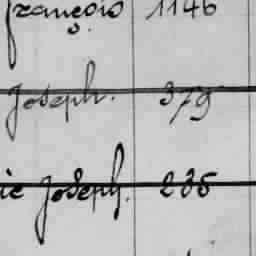 françois 1146
Joseph. 379
ie Joseph. 235